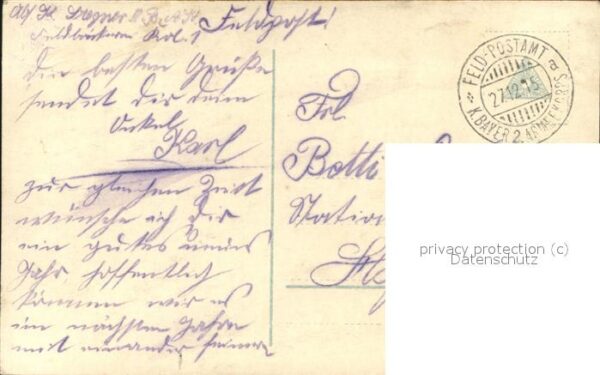 Abs. K. Wagner II. B. A. K.
Feldbäckerei Kol. 1
Feldpost!
Die besten Grüße
sendet dir dein
Onkel
Karl
zur gleichen Zeit
wünsche ich Dir
ein gutes neues
Jahr, hoffentlich
können wir es
im nächsten Jahre
mit einander feiern
FELD-POSTAMT a
27.12.15
* K. BAYER. 2. ARMEEKORPS.
Frl
Betti
Station
privacy protection (c)
Datenschutz